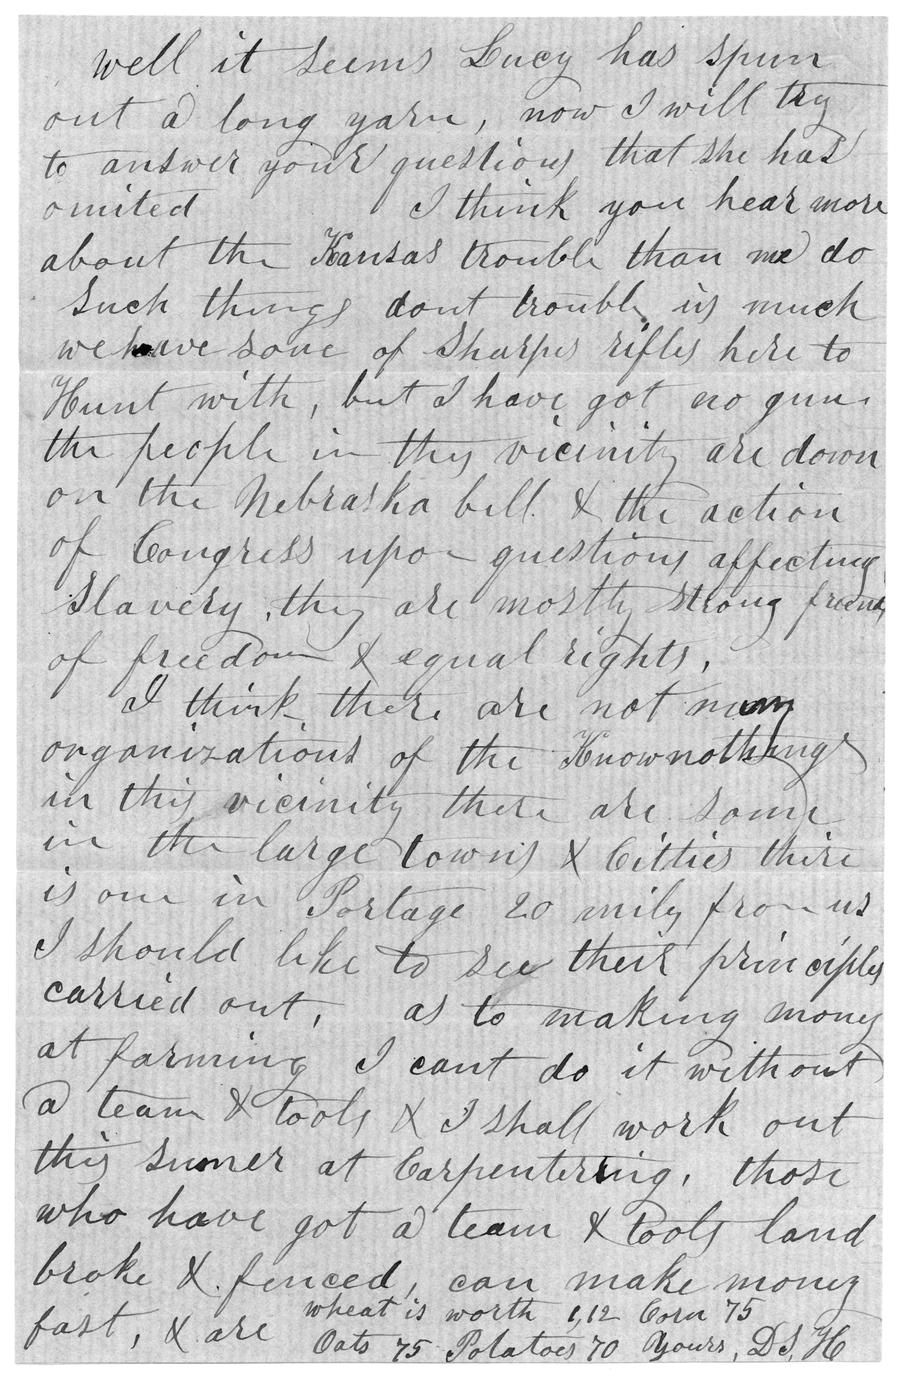 well it seems Lucy has spun
out a long yarn, now I will try
to answer your questions that she has
omited I think you hear more
about the Kansas trouble than we do
such things dont trouble us much
we have some of Sharpes rifles here to
Hunt with, but I have got no gun.
the people in this vicinity are down
on the Nebraska bill & the action
of Congress upon questions affecting
Slavery, they are mostly strong friends
of freedom & equal rights.
I think there are not many
organizations of the Knownothings
in this vicinity there are some
in the large towns & Citties there
is one in Portage 20 miles from us
I should like to see their principles
carried out, as to making money
at farming I cant do it without
a team & tools & I shall work out
this sumer at Carpentering, those
who have got a team & tools land
broke & fenced, can make money
fast, & are wheat is worth 1,12 Corn 75
Oats 75 Potatoes 70 Yours, D.S. H